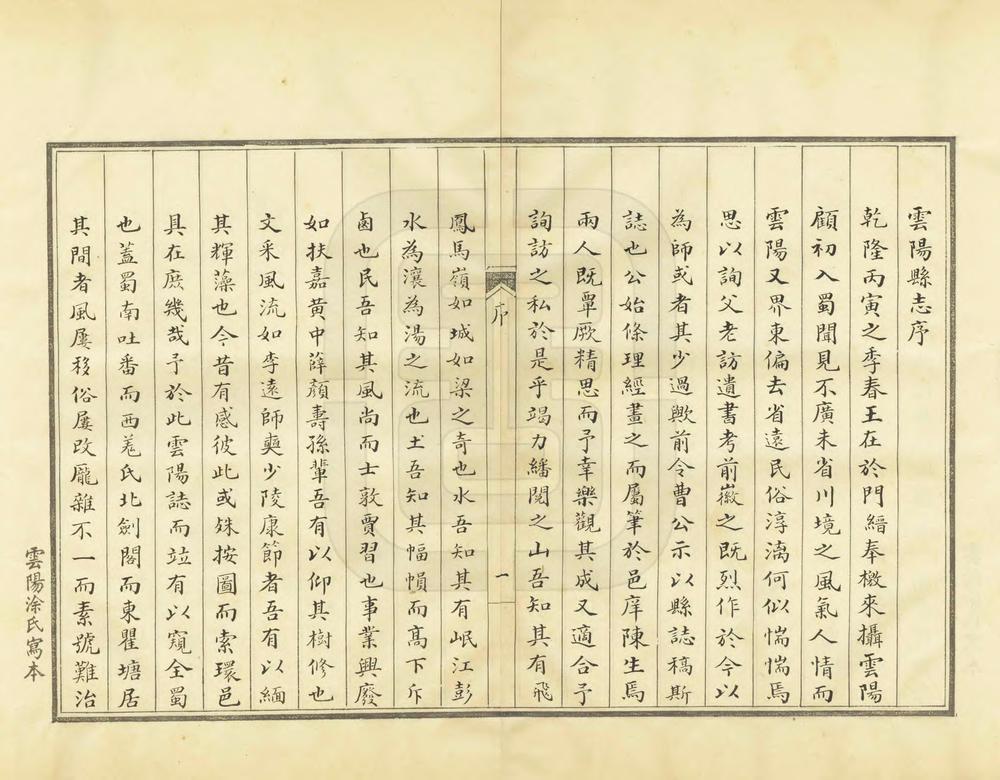 雲陽縣志序
乾隆丙寅之季春王在於門縉奉檄來攝雲陽
顧初入蜀聞見不廣未省川境之風氣人情而
雲陽又界東偏去省遠民俗淳漓何似惴惴焉
思以詢父老訪遺書考前徽之既烈作於今以
為師或者其少過歟前令曹公示以縣誌稿斯
誌也公始條理經畫之而屬筆於邑庠陳生焉
兩人既覃厥精思而予幸樂觀其成又適合予
詢訪之私於是乎竭力繙閱之山吾知其有飛
序
一
鳳馬嶺如城如梁之奇也水吾知其有岷江彭
水為瀼為湯之流也土吾知其幅㡓而高下斥
鹵也民吾知其風尚而士敦賈習也事業興廢
如扶嘉黃中薛顏壽孫輩吾有以仰其樹修也
文采風流如李遠師奭少陵康節者吾有以緬
其輝藻也今昔有感彼此或殊按圖而索環邑
具在庶幾哉予於此雲陽誌而竝有以窺全蜀
也蓋蜀南吐番而西羗氏北劍閣而東瞿塘居
其間者風屢移俗屢改龐雜不一而素號難治
雲陽涂氏寫本